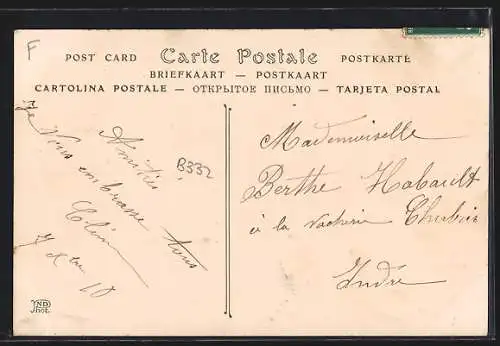 F
POST CARD Carte Postale POSTKARTE
BRIEFKAART — POSTKAART
CARTOLINA POSTALE — ОТКРЫТОЕ ПИСЬМО — TARJETA POSTAL
Amitiés
Je vous embrasse tous
B332
Mademoiselle
Berthe Habault
à la Vacherie
Indre
ND
Phot.